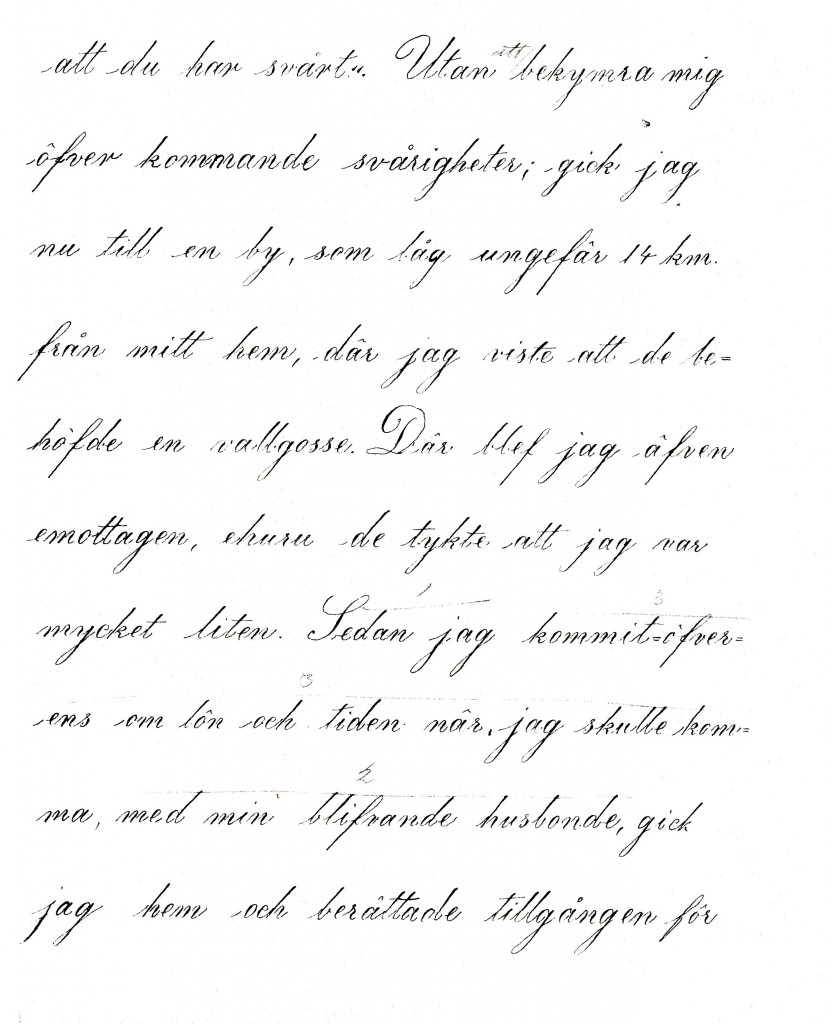 att du har svårt". Utan att bekymra mig
öfver kommande svårigheter; gick jag
nu till en by, som låg ungefär 14 km.
från mitt hem, där jag viste att de be=
höfde en vallgosse. Där blef jag äfven
emottagen, ehuru de tykte att jag var
1 3
mycket liten. Sedan jag kommit=öfver=
3
ens om lön och tiden när, jag skulle kom=
2
ma, med min blifvande husbonde, gick
jag hem och berättade tillgången för